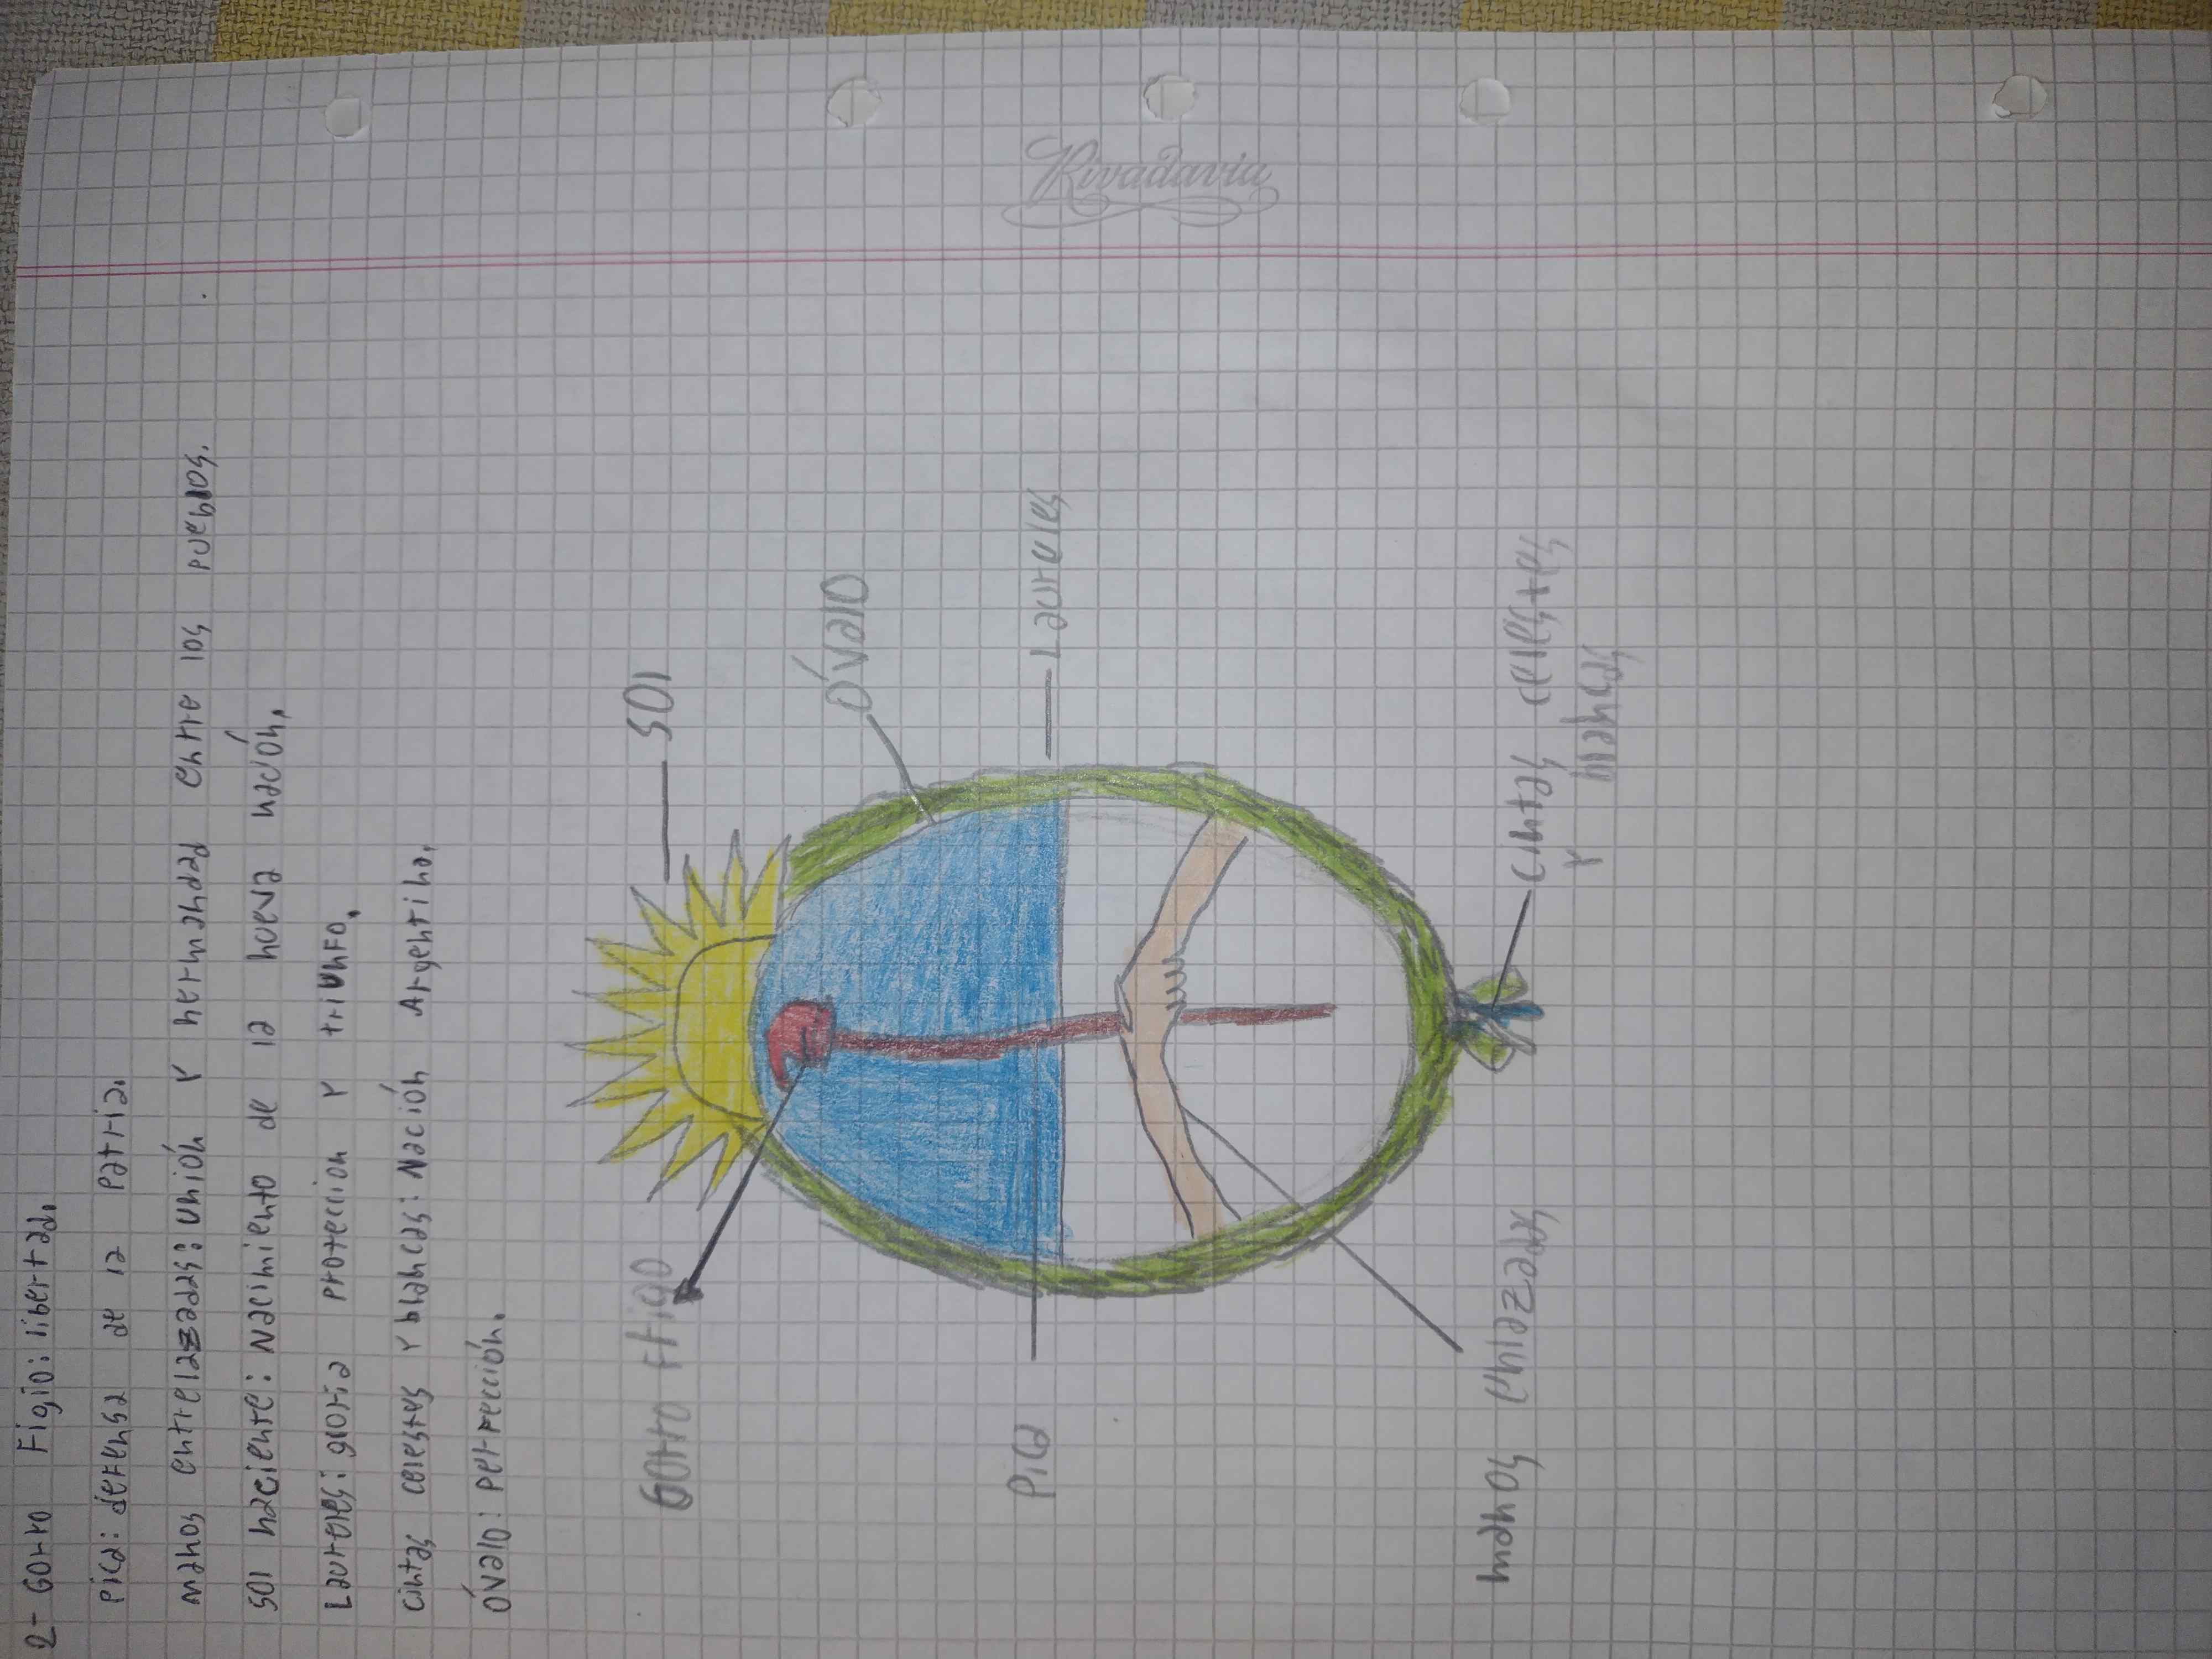 2- Gorro Figio: libertad.
Pica: defensa de la Patria.
Manos entrelazadas: unión y hermandad entre los pueblos.
Sol naciente: Nacimiento de la nueva nación.
Laureles: gloria protección y triunfo.
Cintas celestes y blancas: Nación Argentina.
Óvalo: perfección.
Sol
Gorro Frigo
Óvalo
Pica
Laureles
manos enlazadas
cintas celestes
y blancas
Rivadavia